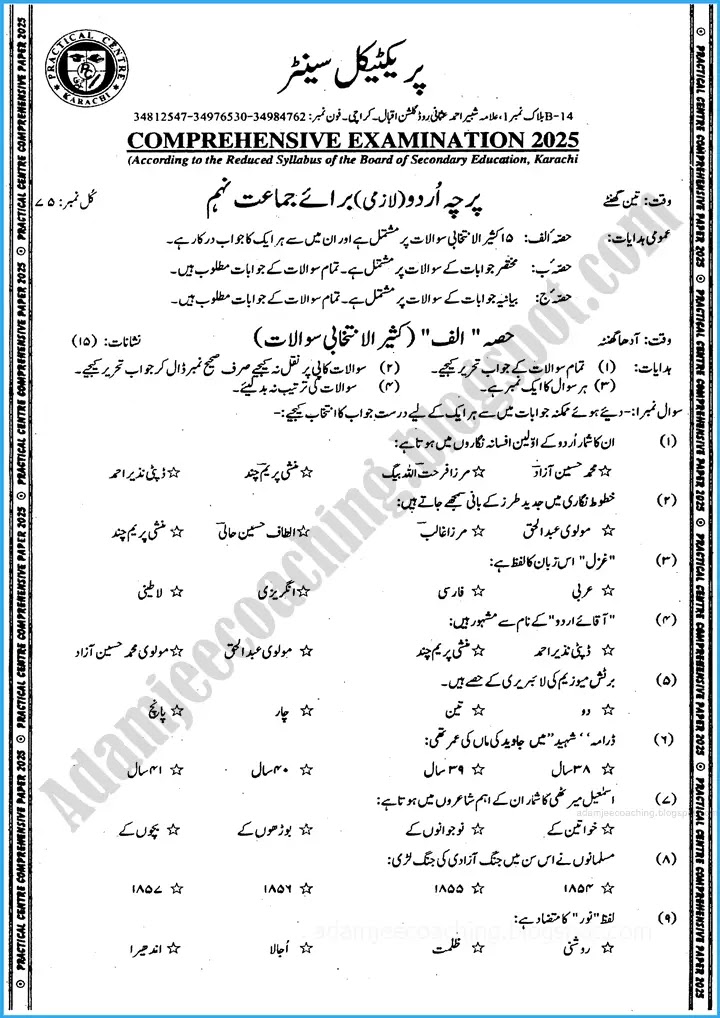 پریکٹیکل سینٹر
PRACTICAL CENTRE
PC
KARACHI
B-14 بلاک نمبر 1، علامہ شبیر احمد عثمانی روڈ گلشن اقبال۔ کراچی۔ فون نمبر: 34984762-34976530-34812547
COMPREHENSIVE EXAMINATION 2025
(According to the Reduced Syllabus of the Board of Secondary Education, Karachi
وقت: تین گھنٹے پرچہ اُردو (لازمی) برائے جماعت نہم کُل نمبر: ۷۵
عمومی ہدایات: حصّہ الف: ۱۵ کثیر الانتخابی سوالات پر مشتمل ہے اور ان میں سے ہر ایک کا جواب درکار ہے۔
حصّہ ب: مختصر جوابات کے سوالات پر مشتمل ہے۔ تمام سوالات کے جوابات مطلوب ہیں۔
حصّہ ج: بیانیہ جوابات کے سوالات پر مشتمل ہے۔ تمام سوالات کے جوابات مطلوب ہیں۔
وقت: آدھا گھنٹہ حصہ "الف" (کثیر الانتخابی سوالات) نشانات: (۱۵)
ہدایات: (۱) تمام سوالات کے جواب تحریر کیجیے۔ (۲) سوالات کاپی پر نقل نہ کیجیے صرف صحیح نمبر ڈال کر جواب تحریر کیجیے۔
(۳) ہر سوال کا ایک نمبر ہے۔ (۴) سوالات کی ترتیب نہ بدلیئے۔
سوال نمبر۱:- دیے ہوئے ممکنہ جوابات میں سے ہر ایک کے لیے درست جواب کا انتخاب کیجیے:-
(۱) ان کا شمار اُردو کے اوّلین افسانہ نگاروں میں ہوتا ہے:
☆ محمد حسین آزاد ☆ مرزا فرحت اللہ بیگ ☆ منشی پریم چند ☆ ڈپٹی نذیر احمد
(۲) خطوط نگاری میں جدید طرز کے بانی سمجھے جاتے ہیں:
☆ مولوی عبدالحق ☆ مرزا غالب ☆ الطاف حسین حالی ☆ منشی پریم چند
(۳) "غزل" اس زبان کا لفظ ہے:
☆ عربی ☆ فارسی ☆ انگریزی ☆ لاطینی
(۴) "آقائے اردو" کے نام سے مشہور ہیں:
☆ ڈپٹی نذیر احمد ☆ منشی پریم چند ☆ مولوی عبدالحق ☆ مولوی محمد حسین آزاد
(۵) برٹش میوزیم کی لائبریری کے حصے ہیں۔
☆ دو ☆ تین ☆ چار ☆ پانچ
(۶) ڈرامہ ''شہید'' میں جاوید کی ماں کی عمر تھی:
☆ ۳۸ سال ☆ ۳۹ سال ☆ ۴۰ سال ☆ ۴۱ سال
(۷) اسمٰعیل میرٹھی کا شمار ان کے اہم شاعروں میں ہوتا ہے:
☆ خواتین کے ☆ نوجوانوں کے ☆ بوڑھوں کے ☆ بچوں کے
(۸) مسلمانوں نے اس سن میں جنگ آزادی کی جنگ لڑی:
☆ ۱۸۵۴ ☆ ۱۸۵۵ ☆ ۱۸۵۶ ☆ ۱۸۵۷
(۹) لفظ "نور" کا متضاد ہے:
☆ روشنی ☆ ظلمت ☆ اُجالا ☆ اندھیرا
PRACTICAL CENTRE COMPREHENSIVE PAPER 2025 ⊙ PRACTICAL CENTRE COMPREHENSIVE PAPER 2025 ⊙ PRACTICAL CENTRE COMPREHENSIVE PAPER 2025 ⊙ PRACTICAL CENTRE COMPREHENSIVE PAPER 2025
⊙ PRACTICAL CENTRE COMPREHENSIVE PAPER 2025 ⊙ PRACTICAL CENTRE COMPREHENSIVE PAPER 2025 ⊙ PRACTICAL CENTRE COMPREHENSIVE PAPER 2025 ⊙ PRACTICAL CENTRE COMPREHENSIVE PAPER 2025
Adamjeecoaching.blogspot.com
adamjeecoaching.blogspot.com
adamjeecoaching.blogspot.com